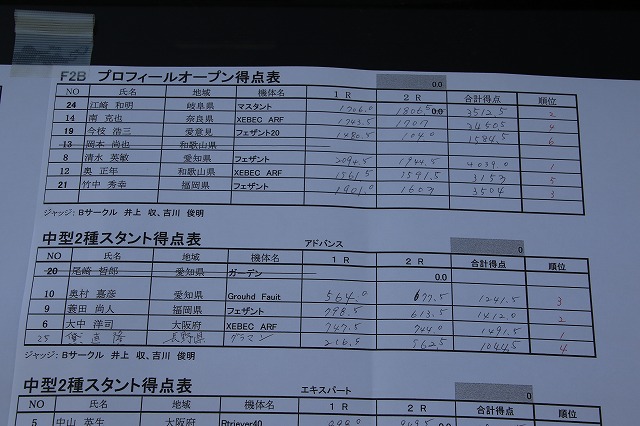 F2B プロフィールオープン得点表 0.0
NO 氏名 地域 機体名 1 R 2 R 合計得点 順位
24 江崎 和明 岐阜県 マスタント 1706.0 1806.5 0.0 3512.5 2
14 南 克也 奈良県 XEBEC ARF 1743.5 1707 3450.5 4
19 今枝 浩三 愛意見 フェザント20 1480.5 104.0 1584.5 6
13 岡本 尚也 和歌山県
8 清水 英敏 愛知県 フェザント 2094.5 1944.5 4039.0 1
12 奥 正年 和歌山県 XEBEC ARF 1561.5 1591.5 3153 5
21 竹中 秀幸 福岡県 フェザント 1901.0 1603 3504 3
ジャッジ: Bサークル 井上 収、吉川 俊明
中型2種スタント得点表 アドバンス 0
NO 氏名 地域 機体名 1 R 2 R 合計得点 順位
20 尾崎 哲郎 愛知県 ガーデン 0.0
10 奥村 嘉彦 愛知県 Grouhd Fauit 564.0 677.5 1241.5 3
9 蓑田 尚人 福岡県 フェザント 798.5 613.5 1412.0 2
6 大中 洋司 大阪府 XEBEC ARF 747.5 744.0 1491.5 1
25 長野県 グラマン 562.5 1044.5 4
ジャッジ: Bサークル 井上 収、吉川 俊明
中型2種スタント得点表 エキスパート 0
NO 氏名 地域 機体名 1 R 2 R 合計得点 順位
5 中山 英生 大阪府 Rtriever40